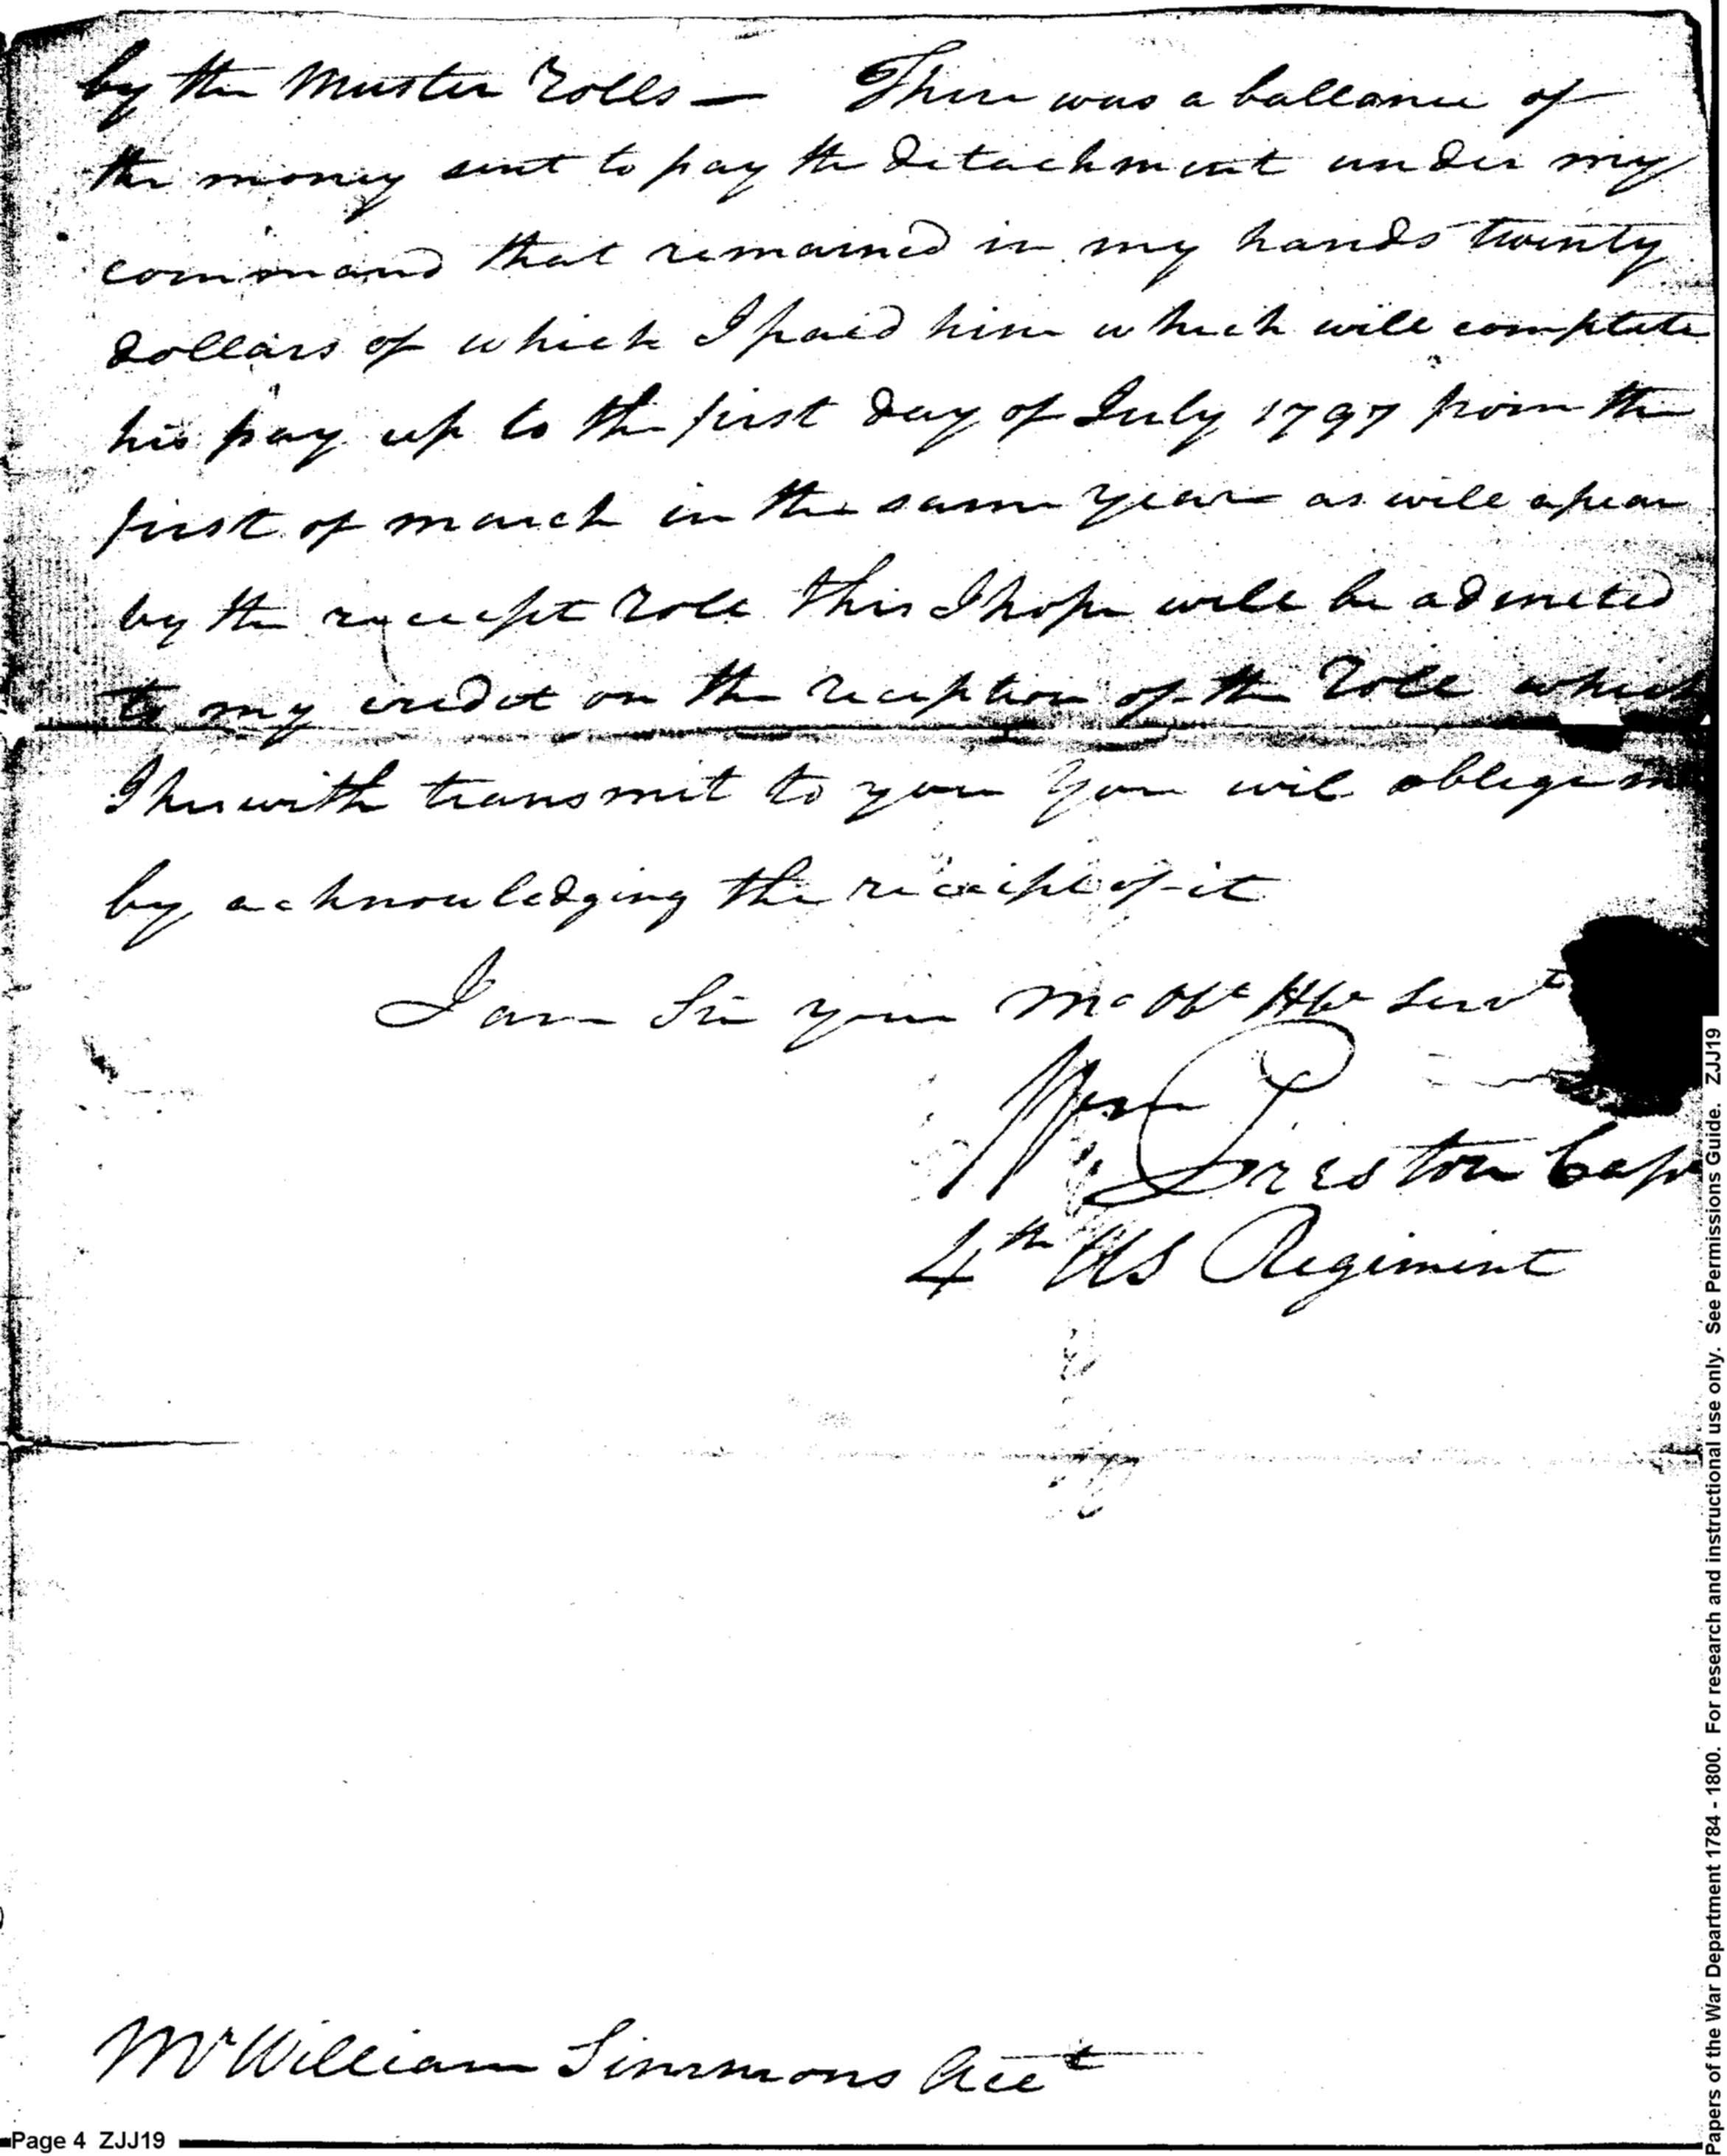 by the Muster Rolls — There was a ballance of
the money sent to pay the detachment under my
command that remained in my hands twenty
dollars of which I paid him which will complete
his pay up to the first day of July 1797 from the
first of march in the same year as will apear
by the receipt Role this I hope will be admited
to my credit on the reception of the Role which
I herwith transmit to you You wil oblige m
by acknowledging the receipt of it
I am Sir your Mo Obt Hbe Servt
Wm Preston Capt
4th US Regiment
Mr William Simmons Acct
Page 4 ZJJ19
Papers of the War Department 1784 - 1800. For research and instructional use only. See Permissions Guide. ZJJ19